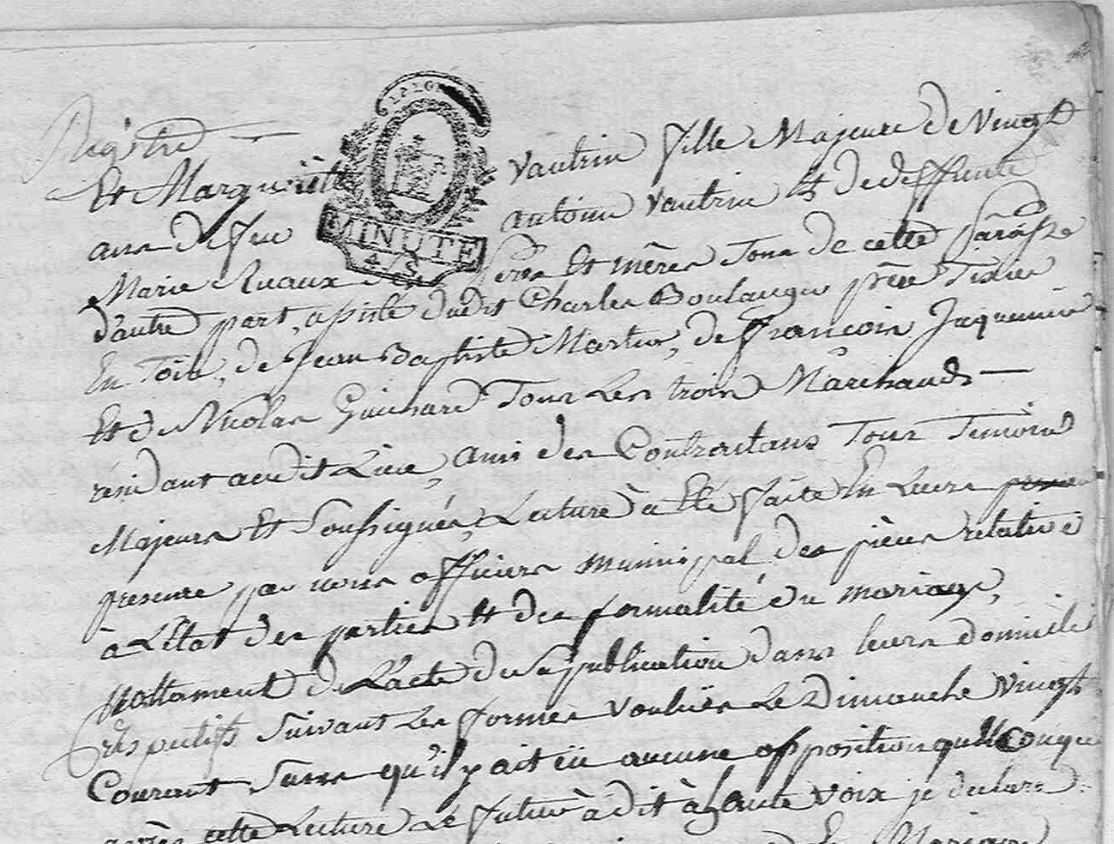 Registre
Et Margueritte Vautrin fille Majeure de Vingt
ans de feu antoine Vautrin Et de deffunte
MINUTE
Marie Ruaux Ses pères Et mères Tous de cette paroisse
d'autre part, assisté dudit Charles Boulanger père Tixier
En Toile, de Jean Baptiste Martin, de francois Jaquemin
Et de Nicolas Guichard Tous Les trois Marchands
résidant audit Lieu, amis des Contractans Tous Temoins
Majeurs Et Soussignés, Lecture à Eté faite En Leurs
presence par nous officiers municipal des pièces relative
à L'Etat des parties Et des formalité du mariage,
nottament de L'acte de Sa publication dans leurs domicile
réspectifs Suivant Les formes voulües Le Dimanche Vingt
Courant Sans qu'il y ait eü aucune opposition quelleconque
après cette Lecture Le futur à dit à haute Voix je déclare
En Mariage